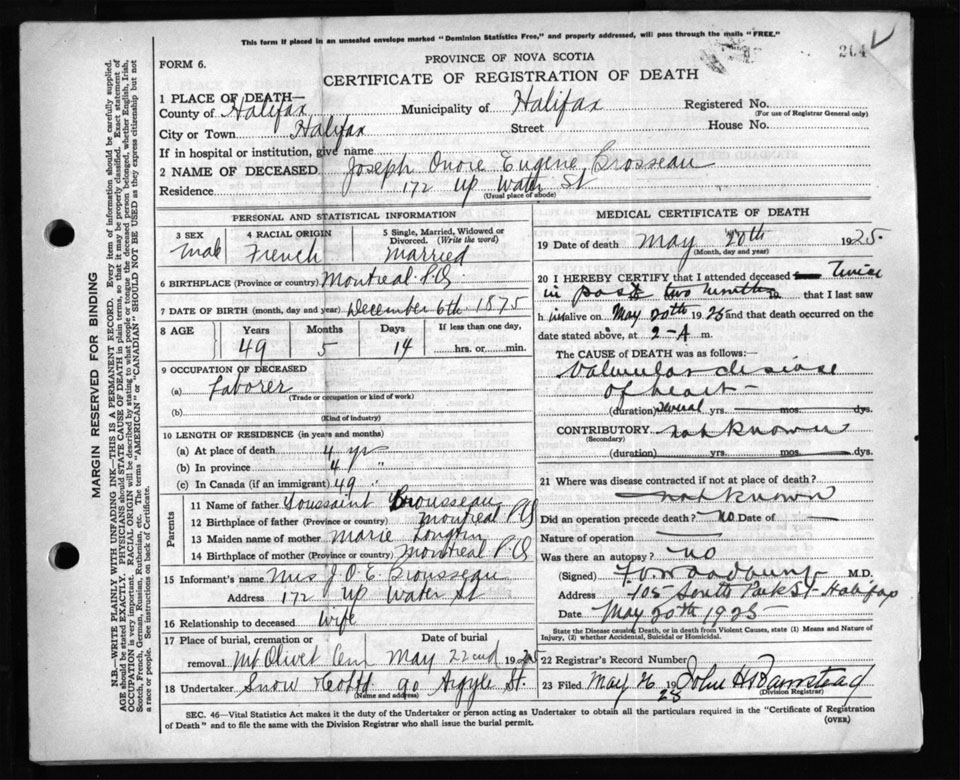 This form if placed in an unsealed envelope marked "Dominion Statistics Free," and properly addressed, will pass through the mails "FREE."
264
FORM 6.
PROVINCE OF NOVA SCOTIA
CERTIFICATE OF REGISTRATION OF DEATH
1 PLACE OF DEATH—
County of Halifax Municipality of Halifax Registered No.
(For use of Registrar General only)
City or Town Halifax Street House No.
If in hospital or institution, give name
2 NAME OF DECEASED Joseph Onore Eugene Brosseau
Residence 172 Up Water St
(Usual place of abode)
PERSONAL AND STATISTICAL INFORMATION
3 SEX 4 RACIAL ORIGIN 5 Single, Married, Widowed or Divorced. (Write the word)
Male French Married
6 BIRTHPLACE (Province or country) Montreal P.Q
7 DATE OF BIRTH (month, day and year) December 6th 1875
8 AGE Years Months Days If less than one day,
49 5 14 hrs. or min.
9 OCCUPATION OF DECEASED
(a) Laborer
(Trade or occupation or kind of work)
(b)
(Kind of industry)
10 LENGTH OF RESIDENCE (in years and months)
(a) At place of death 4 yr
(b) In province 4 "
(c) In Canada (if an immigrant) 49 "
Parents
11 Name of father Toussaint Brousseau
12 Birthplace of father (Province or country) Montreal P.Q
13 Maiden name of mother Marie Longtin
14 Birthplace of mother (Province or country) Montreal P.Q
15 Informant's name Mrs J. O. E. Brousseau
Address 172 Up Water St
16 Relationship to deceased Wife
17 Place of burial, cremation or Date of burial
removal Mt Olivet Cem May 22nd 1925
18 Undertaker Snow & Co Ltd 90 Argyle St.
(Name and address)
MEDICAL CERTIFICATE OF DEATH
19 Date of death May 20th 1925
(Month, day and year)
20 I HEREBY CERTIFY that I attended deceased Twice
in past two months 19 that I last saw
h im alive on May 20th 1925 and that death occurred on the
date stated above, at 2-A m.
The CAUSE OF DEATH was as follows:
Valvular disease
of heart—
(duration) several yrs. mos. dys.
CONTRIBUTORY not known
(Secondary)
(duration) yrs. mos. dys.
21 Where was disease contracted if not at place of death?
not known
Did an operation precede death? no Date of
Nature of operation
Was there an autopsy? no
(Signed) F.V. Woodbury M.D.
Address 105 South Park St- Halifax
Date May 20th 1925
State the Disease causing Death, or in death from Violent Causes, state (1) Means and Nature of Injury, (2) whether Accidental, Suicidal or Homicidal.
22 Registrar's Record Number
23 Filed May 26 1925 John H Barnstead
(Division Registrar)
SEC. 46—Vital Statistics Act makes it the duty of the Undertaker or person acting as Undertaker to obtain all the particulars required in the "Certificate of Registration
of Death" and to file the same with the Division Registrar who shall issue the burial permit.
(OVER)
MARGIN RESERVED FOR BINDING
N.B.—WRITE PLAINLY WITH UNFADING INK—THIS IS A PERMANENT RECORD. Every item of information should be carefully supplied.
AGE should be stated EXACTLY. PHYSICIANS should STATE CAUSE OF DEATH in plain terms, so that it may be properly classified. Exact statement of
OCCUPATION is very important. RACIAL ORIGIN will be described by stating to what people or tongue the deceased person belonged, whether English, Irish,
Scotch, French, German, Russian, Ruthenian, etc. The terms "AMERICAN" or "CANADIAN" SHOULD NOT BE USED as they express citizenship but not
a race or people. See instructions on back of Certificate.